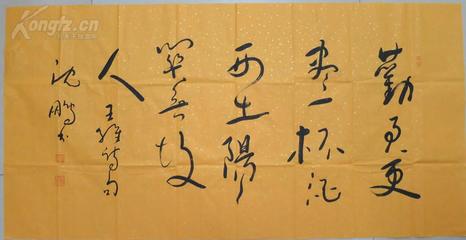 勸君更
盡一杯酒
西出陽
關無故
人 王維詩句
沈鵬书
Kongfz.cn